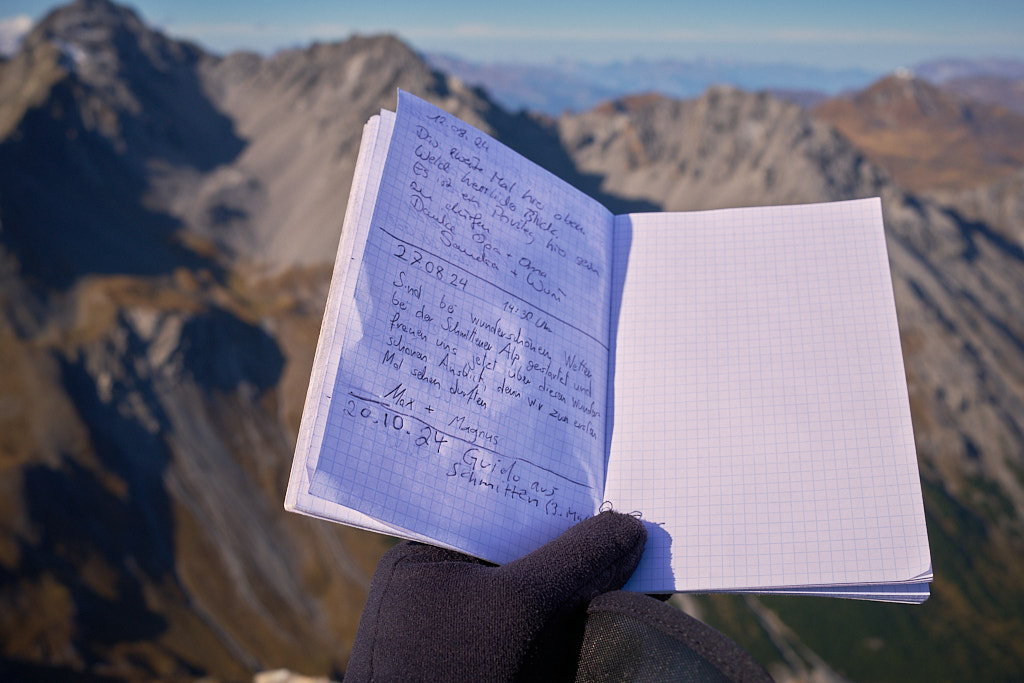 12.08.24
Das zweite Mal hier oben
Welch herrliche Blick
Es ist ein Privileg hier sein
zu dürfen
Danke Opa + Oma
Sandra +
27.08.24 14:30 Uhr
Sind bei wunderschönen Wetter
bei der Schmittener Alp gestartet und
freuen uns jetzt über diesen wunder-
schönen Anblick, denn wir zum ersten
Mal sehen dürften
Max + Magnus
20.10.24 Guido aus
Schmitten (3.